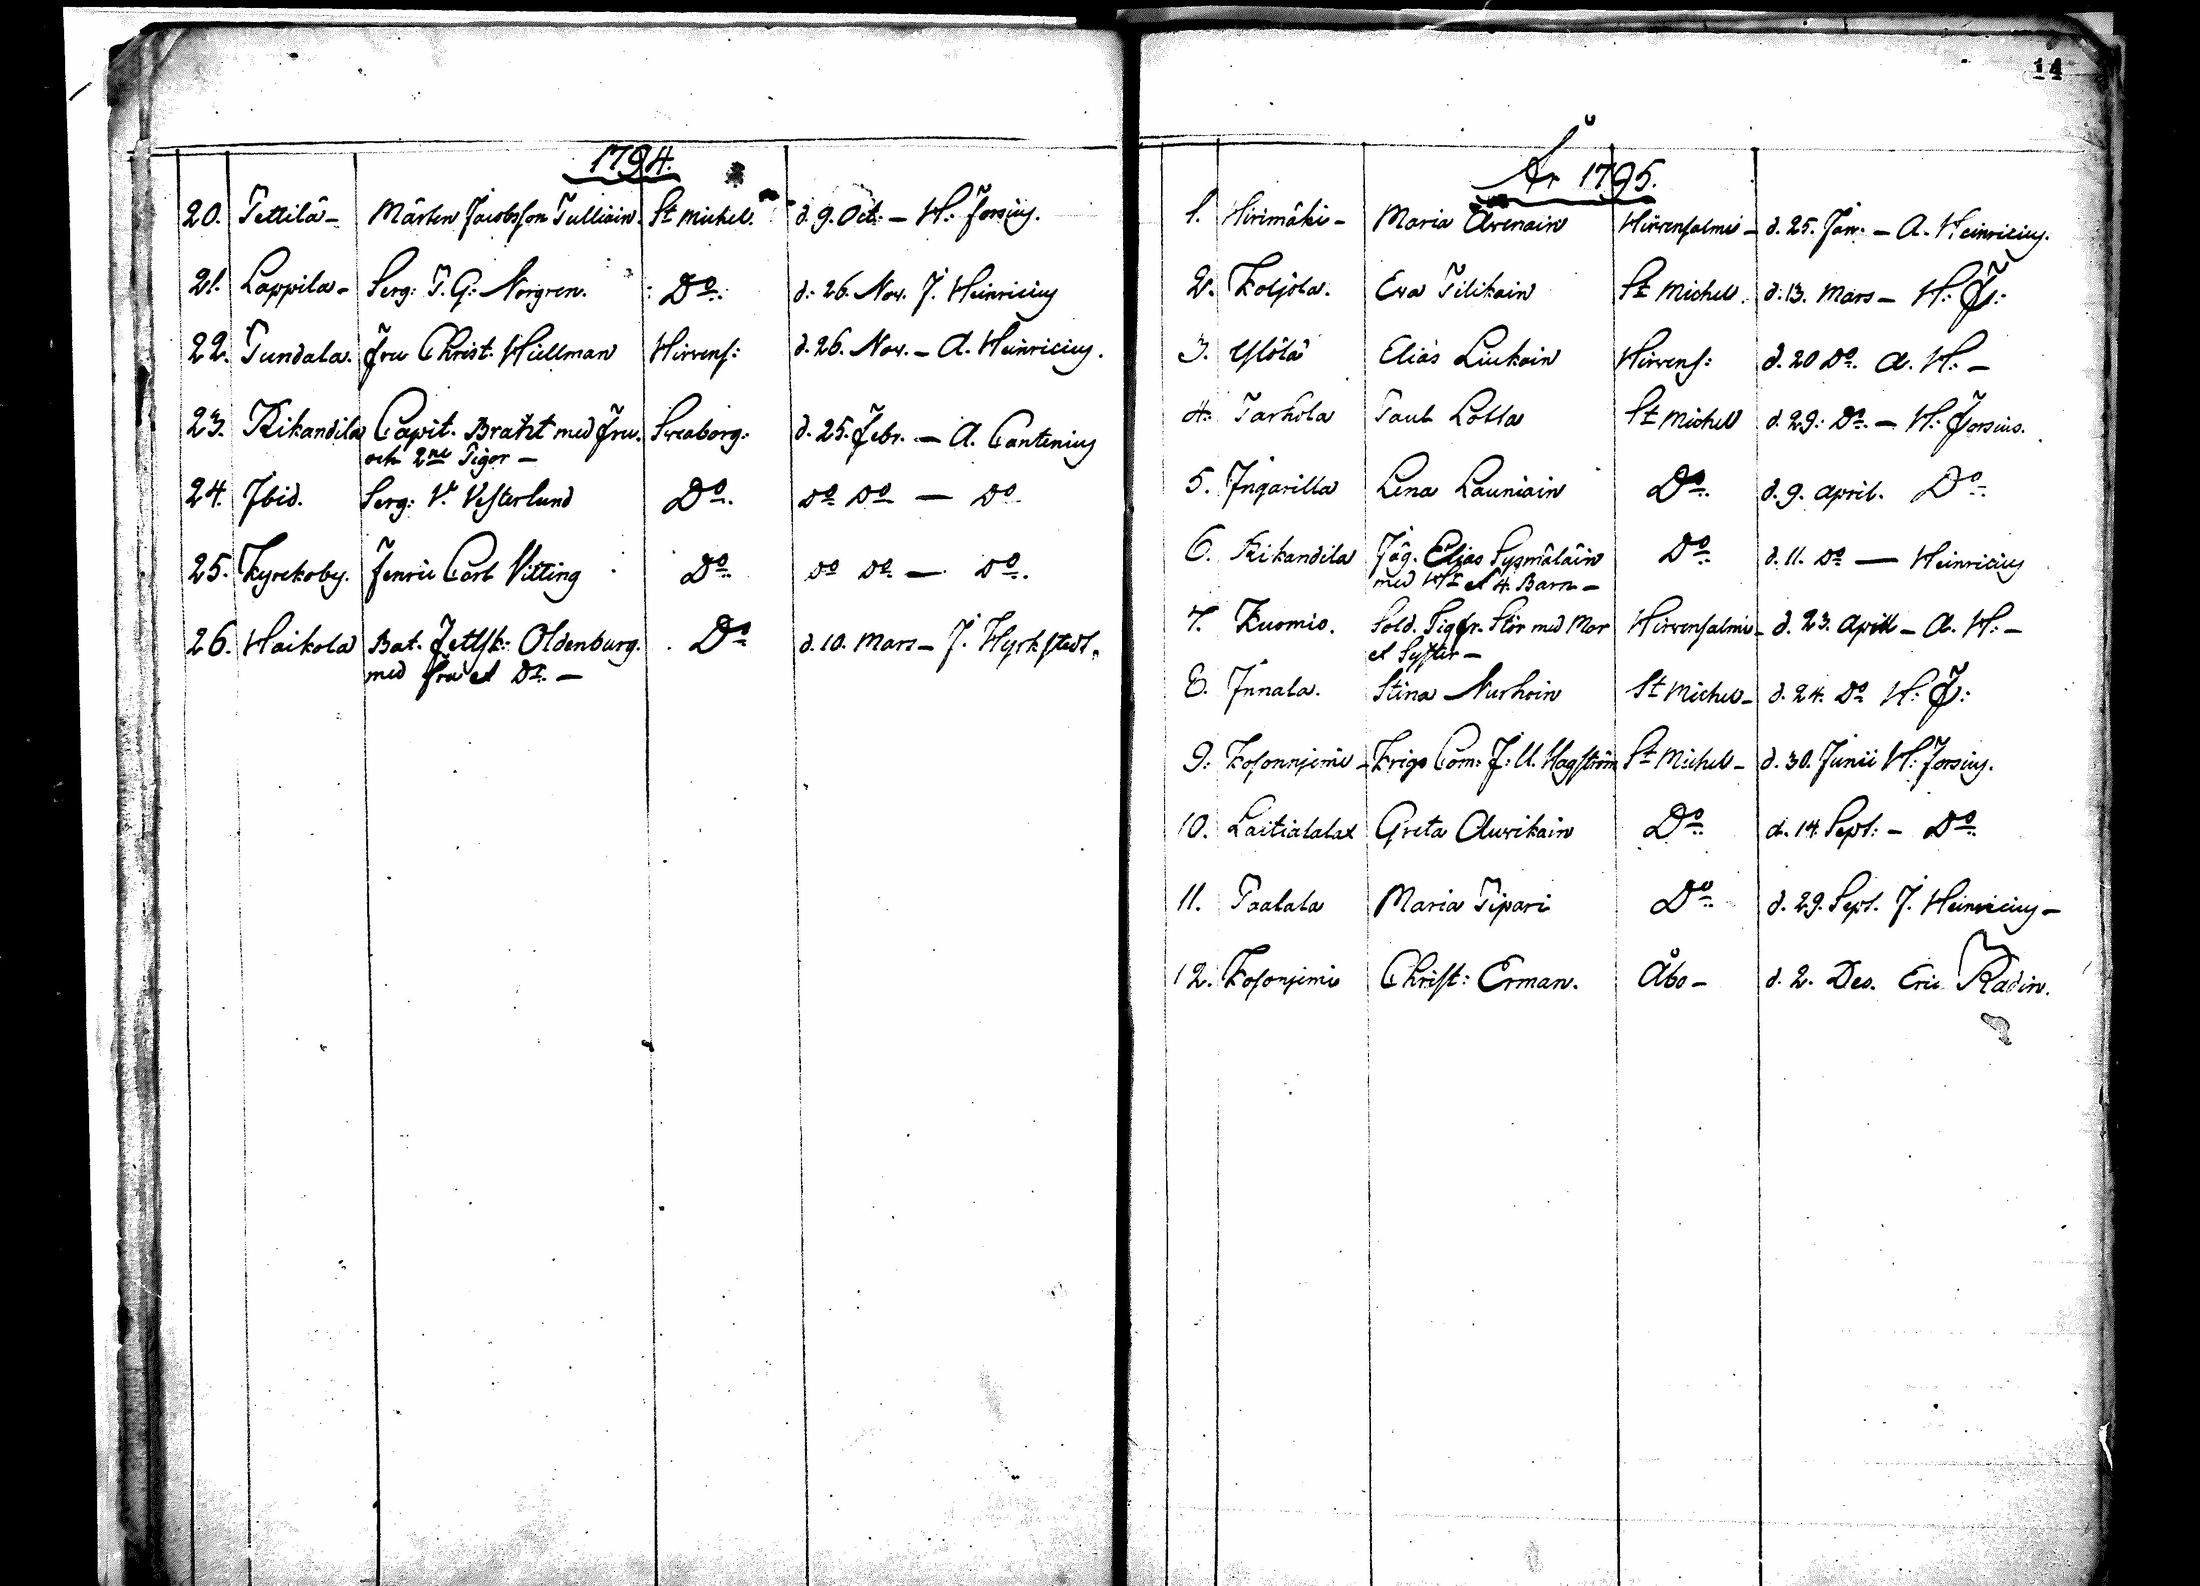 14
1794.
20. Pettilä - Mårten Jacobsson Pulliain - St Michel. d. 9. Oct. - H: Forsius.
21. Lappila - Serg: P. G: Norgren. Do. d: 26. Nov. J. Heinricius
22. Pundala. Fru Christ. Hüllman Hirvens: d. 26. Nov. - A. Heinricius.
23. Kikandila Capit. Braht med Fru. Sveaborg. d. 25. Febr. - A. Cantenius
och 2ne Pigor -
24. Ibid. Serg: V. Vesterlund Do. Do Do - Do
25. Kyrckoby. Fenric Carl Vitting Do. Do Do. - Do.
26. Haikola Bat. Feltsk: Oldenburg. Do d. 10. Mars - J. Hyrkstedt.
med fru et Dr. -
År 1795.
1. Hirimäki - Maria Arenain Hirvensalmi - d. 25. Jan: - A. Heinricius.
2. Koljola. Eva Pilikain St Michel. d. 13. Mars - H: F:
3. Ylölä Elias Liukain Hirvens: d. 20 Do. A. H: -
4. Parkola Paul Lotta St Michel d. 29: Do. - H: Forsius.
5. Ingarilla Lena Launiain Do. d. 9. April. Do.
6. Kikandila Jäg. Elias Sysmäläin Do. d. 11. Do - Heinricius
med Hr et 4. Barn -
7. Kuomio. Sold. Sigfr. Stör med Mor Hirvensalmi - d. 23. April - A. H: -
et Syster -
8. Innala. Stina Nurhoin St Michel - d. 24. Do H: F:
9. Kosonnjemi - Krigs Com: J: U. Hagström St Michel - d. 30. Junii H: Forsius.
10. Laitialalax Greta Auvikain Do. d. 14. Sept: - Do.
11. Paalala Maria Pipari Do. d. 29. Sept. J. Heinricius -
12. Kosonjemi Christ: Erman. Åbo - d. 2. Dec. Eric Radin.